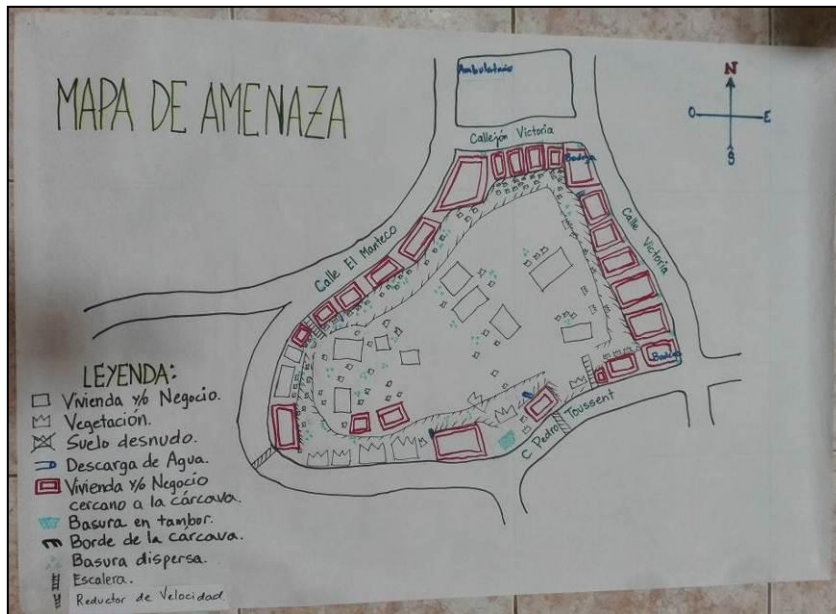 MAPA DE AMENAZA
Ambulatorio
N
O E
S
Callejón Victoria
Bodega
Calle Victoria
Calle El Manteco
Bodega
C Pedro Toussent
LEYENDA:
Vivienda y/o Negocio.
Vegetación.
Suelo desnudo.
Descarga de Agua.
Vivienda y/o Negocio
cercano a la cárcava.
Basura en tambor.
Borde de la cárcava.
Basura dispersa.
Escalera.
Reductor de Velocidad